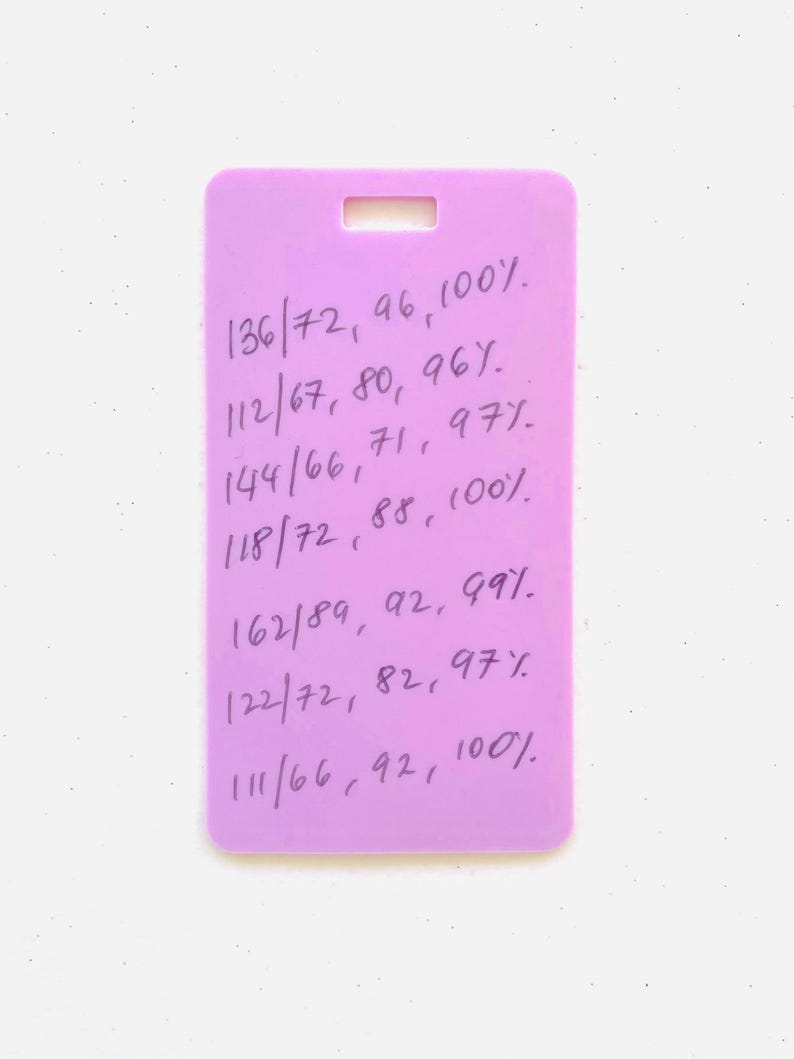 136/72, 96, 100%.
112/67, 80, 96%.
144/66, 71, 97%.
118/72, 88, 100%.
162/89, 92, 99%.
122/72, 82, 97%.
111/66, 92, 100%.